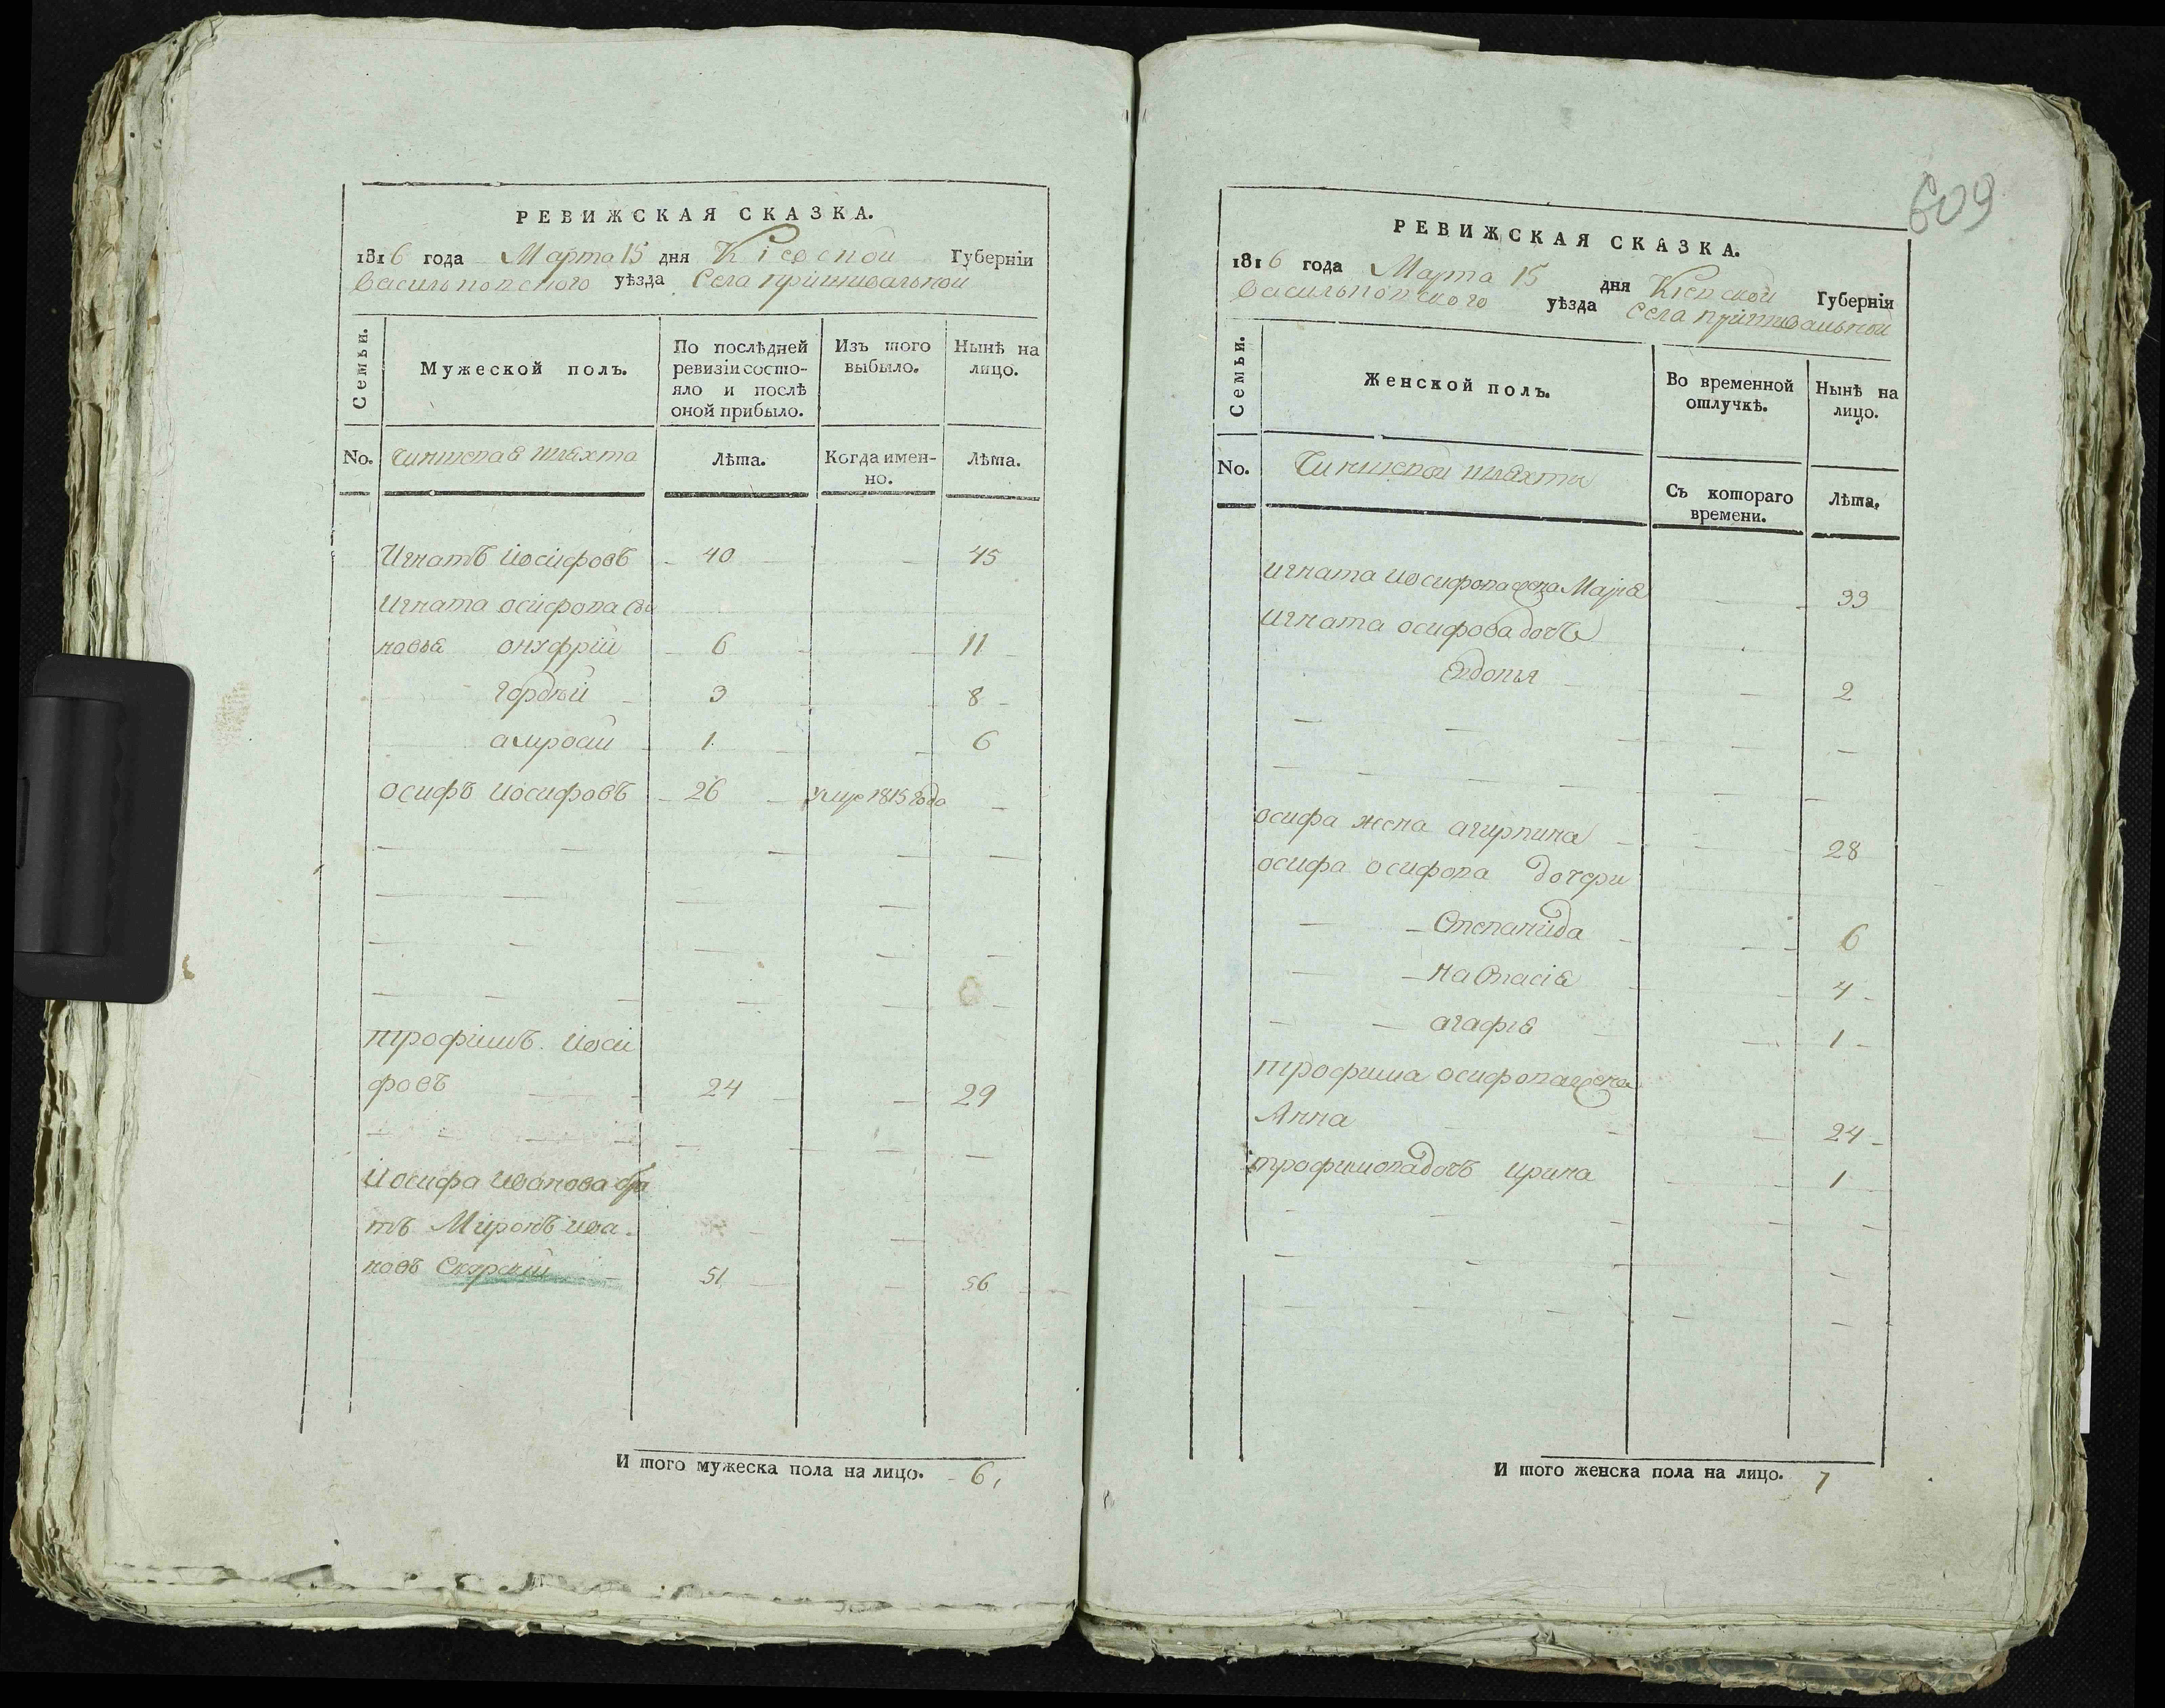 РЕВИЖСКАЯ СКАЗКА.
1816 года Марта 15 дня Кіевской Губерніи
Васильковского уѣзда Села пришивальной
Семьи.
Мужеской полъ.
По послѣдней ревизіи состояло и послѣ оной прибыло.
Изъ того выбыло.
Нынѣ на лицо.
No. Чиншевая шляхта Лѣта. Когда именно. Лѣта.
Игнатъ Іосифовъ 40 45
Игната осифова сы
новья онуфрій 6 11
гордѣй 3 8
амросий 1 6
осифъ Иосифовъ 26 умре 1815 года
трофимъ Иоси
фовъ 24 29
Иосифа Иванова бра
тъ Миронъ Ива
новъ 51 56
И того мужеска пола на лицо. 6
609
РЕВИЖСКАЯ СКАЗКА.
1816 года Марта 15 дня Кіевской Губерніи
Васильковского уѣзда Села пришивальной
Семьи.
Женской полъ.
Во временной отлучкѣ.
Нынѣ на лицо.
No. Чиншевой шляхты Съ котораго времени. Лѣта.
Игната Иосифова жена Марія 33
Игната осифова дочь
Евдокія 2
осифа жена агрипина 28
осифа осифова дочери
Степанида 6
Настасія 4
агафія 1
трофима осифова жена
Анна 24
трофимова дочь Ирина 1
И того женска пола на лицо. 7